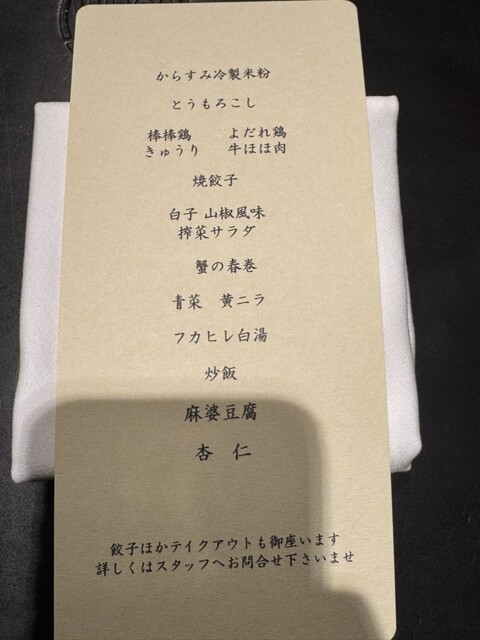 からすみ冷製米粉
とうもろこし
棒棒鶏　　よだれ鶏
きゅうり　牛ほほ肉
焼餃子
白子 山椒風味
搾菜サラダ
蟹の春巻
青菜　黄ニラ
フカヒレ白湯
炒飯
麻婆豆腐
杏　仁
餃子ほかテイクアウトも御座います
詳しくはスタッフへお問合せ下さいませ